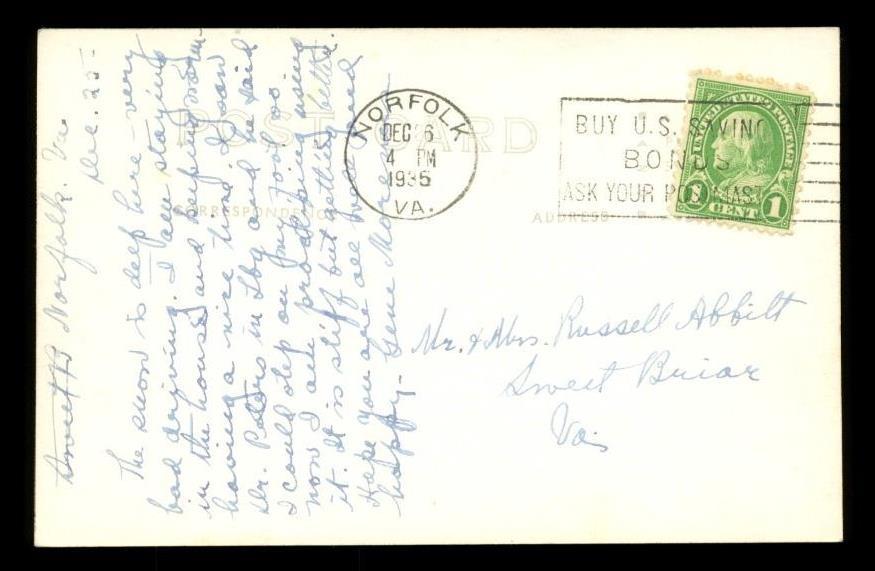 POST CARD
CORRESPONDENCE
ADDRESS
NORFOLK
DEC 26
4 PM
1935
VA.
BUY U.S. SAVINGS
BONDS
ASK YOUR POSTMASTER
UNITED STATES POSTAGE
1 CENT 1
Norfolk, Va
Dec. 25-
The snow is deep here - very
bad driving. I am staying
in the house and keeping warm-
having a nice time. I saw
Dr. Peters in and he said
I could step on my foot so
now I am practicing using
it. It is stiff but getting better.
Hope you are all well and
happy- Gene
Mr. & Mrs. Russell Abbitt
Sweet Briar
Va.